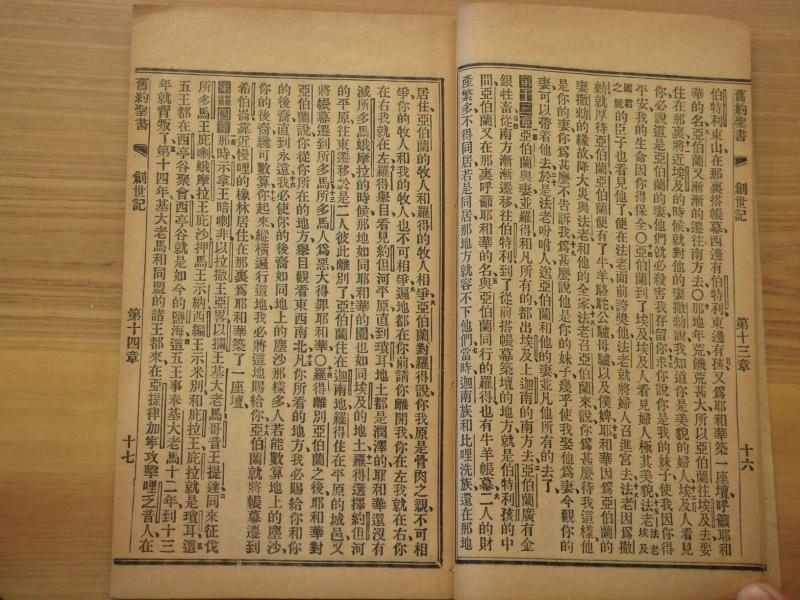 舊約聖書 創世記 第十三章 十六
伯特利東山在那裏搭帳幕西邊有伯特利東邊有孩又爲耶和華築一座壇呼籲耶和
華的名亞伯蘭又漸漸的遷往南方去〇那地年荒饑荒甚大所以亞伯蘭往埃及去要
住在那裏將近埃及的時候就對他的妻撒勑說我知道你是美貌的婦人埃及人看見
你必說這是亞伯蘭的妻他們就必殺害我存留你求你說你是我的妹子使我因你得
平安我的生命因你得保全〇亞伯蘭到了埃及埃及人看見婦人極其美貌法老
之號的臣子也看見他了便在法老面前誇獎他法老就將婦人召進宮去法老因爲撒
勑就厚待亞伯蘭亞伯蘭便有了牛羊駱駝公驢母驢以及僕婢耶和華因爲亞伯蘭的
妻撒勑的緣故降大災與法老和他的全家法老召亞伯蘭來說你爲甚麽待我這樣他
是你的妻你爲甚麽不告訴我爲甚麽說他是你的妹子幾乎使我娶他爲妻今觀你的
妻可以帶着他去於是法老吩咐人送亞伯蘭和他的妻並凡他所有的去了
第十三章亞伯蘭與妻並羅得和凡所有的都出埃及上迦南的南方去亞伯蘭廣有金
銀牲畜從南方漸漸遷移往伯特利到了從前搭帳幕築壇的地方就是伯特利孩的中
間亞伯蘭又在那裏呼籲耶和華的名與亞伯蘭同行的羅得也有牛羊帳幕二人的財
產繁多不得同居若是同居那地方就容不下他們當時迦南族和比哩洗族還在那地
居住亞伯蘭的牧人和羅得的牧人相爭亞伯蘭對羅得說你我原是骨肉之親不可相
爭你的牧人和我的牧人也不可相爭遍地都在你前請你離開我你在左我就在右你
在右我就在左羅得舉目看見約但河平原直到瑣耳地土都是潤澤的耶和華還沒有
滅所多馬蛾摩拉的時候那地如同耶和華的園也如同埃及的地土羅得選擇約但河
的平原往東遷移於是二人彼此離別了亞伯蘭住在迦南地羅得住在平原的城邑又
將帳幕遷到所多馬所多馬人爲惡大得罪耶和華〇羅得離別亞伯蘭之後耶和華對
亞伯蘭說你從你所在的地方舉目觀看東西南北凡你所看的地方我必賜給你和你
的後裔直到永遠我必使你的後裔如同地上的塵沙那樣多人若能數算地上的塵沙
你的後裔纔可數算你起來縱橫遍行這地我必將這地賜給你亞伯蘭就將帳幕遷到
希伯崙靠近慢哩的橡林居住在那裏爲耶和華築了一座壇
第十四章那時示拿王暗喇非以拉撒王亞畧以攔王基大老馬哥音王提達同來征伐
所多馬王庇喇蛾摩拉王庇沙押馬王示納西編王示米別和比拉王庇拉就是瑣耳這
五王都在西亭谷聚會西亭谷就是如今的鹽海這五王事奉基大老馬十二年到十三
年就背叛了第十四年基大老馬和同盟的諸王都來在亞提律加寧攻擊哩乏音人在
舊約聖書 創世記 第十四章 十七